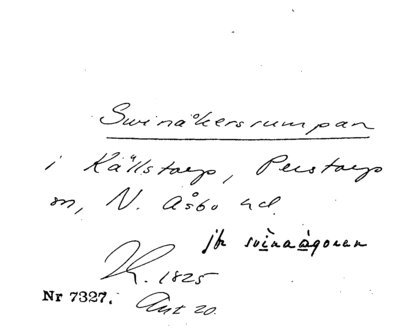 Svinåkersrumpan
i Källstorp, Perstorp
sn, N. Åsbo hd.
jfr svinaågoren
1825
Nr 7327. Akt 20.